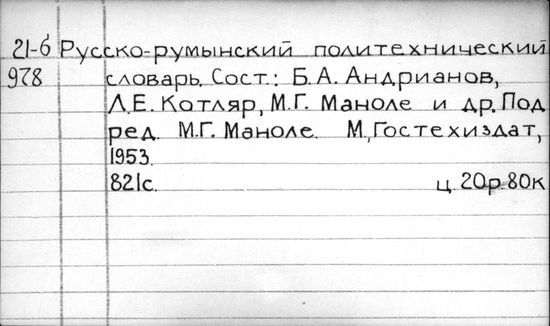 21-б Русско-румынский политехнический
978 словарь. Сост.: Б.А. Андрианов,
Л.Е. Котляр, М.Г. Маноле и др. Под
ред. М.Г. Маноле. М., Гостехиздат,
1953.
821с. ц. 20р.80к